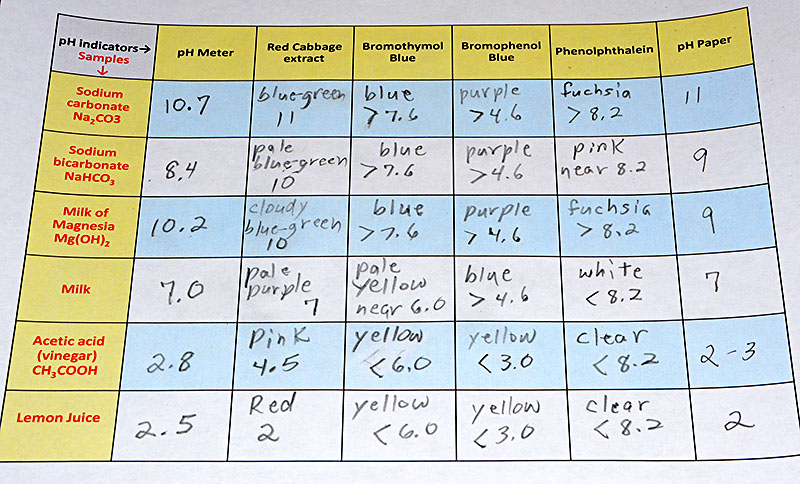 pH indicators→
Samples
↓
pH Meter
Red Cabbage
extract
Bromothymol
Blue
Bromophenol
Blue
Phenolphthalein
pH Paper
Sodium
carbonate
Na₂CO3
10.7
blue-green
11
blue
>7.6
purple
>4.6
fuchsia
>8.2
11
Sodium
bicarbonate
NaHCO₃
8.4
pale
blue-green
10
blue
>7.6
purple
>4.6
pink
near 8.2
9
Milk of
Magnesia
Mg(OH)₂
10.2
cloudy
blue-green
10
blue
>7.6
purple
>4.6
fuchsia
>8.2
9
Milk
7.0
pale
purple
7
pale
yellow
near 6.0
blue
>4.6
white
<8.2
7
Acetic acid
(vinegar)
CH₃COOH
2.8
Pink
4.5
yellow
<6.0
yellow
<3.0
clear
<8.2
2-3
Lemon Juice
2.5
Red
2
yellow
<6.0
yellow
<3.0
clear
<8.2
2